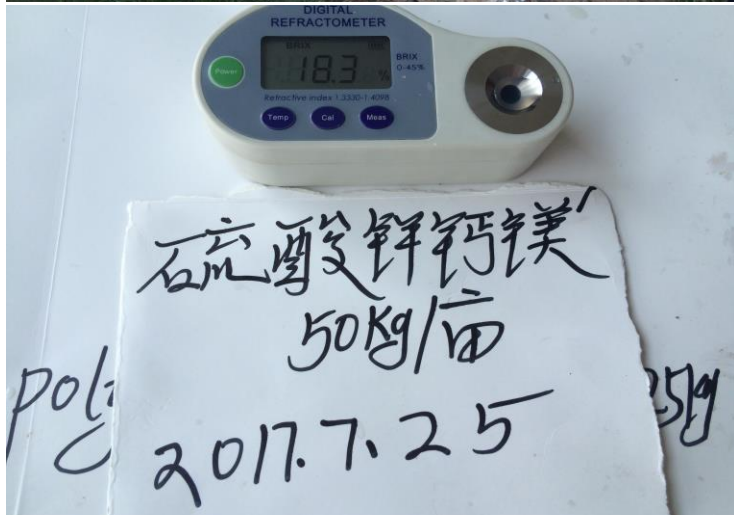 DIGITAL
REFRACTOMETER
BRIX
18.3 %
BRIX
0-45%
Power
Refractive index 1.3330-1.4098
Temp Cal Meas
硫酸锌钙镁
50Kg/亩
2017.7.25